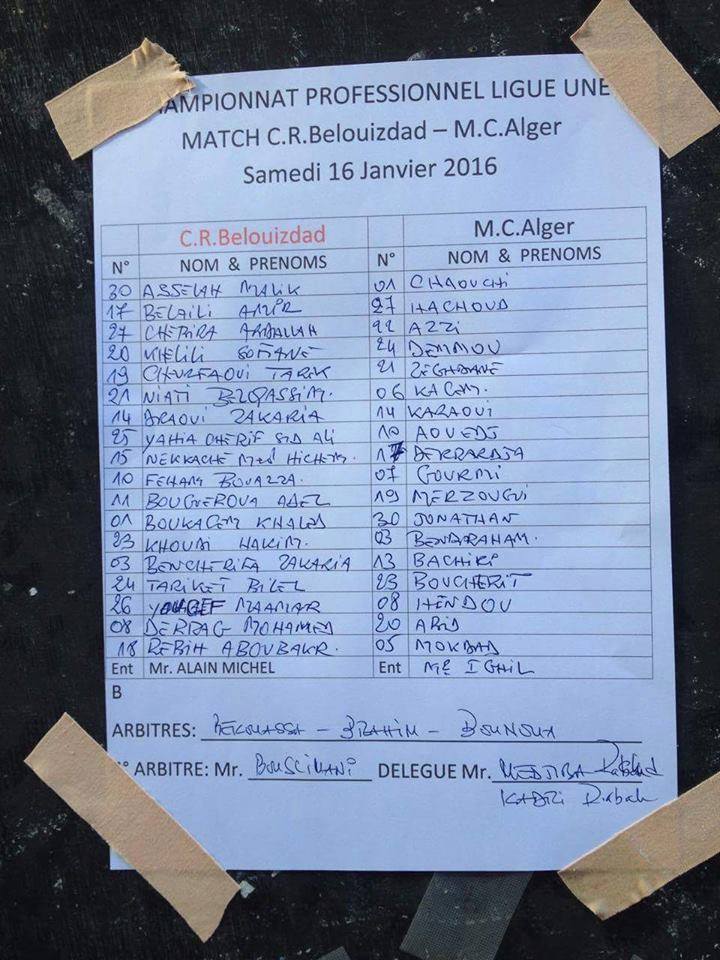 HAMPIONNAT PROFESSIONNEL LIGUE UNE
MATCH C.R.Belouizdad – M.C.Alger
Samedi 16 Janvier 2016
C.R.Belouizdad M.C.Alger
N° NOM & PRENOMS N° NOM & PRENOMS
30 ASSELAH MALIK 01 CHAOUCHI
17 BELAILI AMIR 27 HACHOUD
27 CHERIRA ABDALLAH 22 AZZI
20 KHELILI SOFIANE 24 DEMMOU
19 CHERFAOUI TARIK 21 ZEGHDANE
21 NIATI BELQASSIM. 06 KACEM.
14 DRAOUI ZAKARIA 14 KARAOUI
25 YAHIA CHERIF SID ALI 10 AOUEDJ
15 NEKKACHE Med HICHEM. 17 DERRARDJA
10 FEHAM BOUAZZA. 07 GOURMI
11 BOUGUEROUA ADEL 19 MERZOUGUI
01 BOUKACEM KHALED 30 JONATHAN
23 KHOUDI HAKIM. 03 BENBRAHAM.
03 BENCHERIFA ZAKARIA 13 BACHIRI
24 TARIKET BILEL 23 BOUCHERIT
26 YOUCEF MAAMAR 08 HENDOU
08 DERRAG MOHAMED 20 ABID
18 REBIH ABOUBAKR. 05 MOKDAD
Ent Mr. ALAIN MICHEL Ent Mr IGHIL
B
ARBITRES: BEKOUASSA – BRAHIM – BOUNOUA
° ARBITRE: Mr. BOUSLIMANI DELEGUE Mr. MEDJIBA Rachid
KADRI Rabah